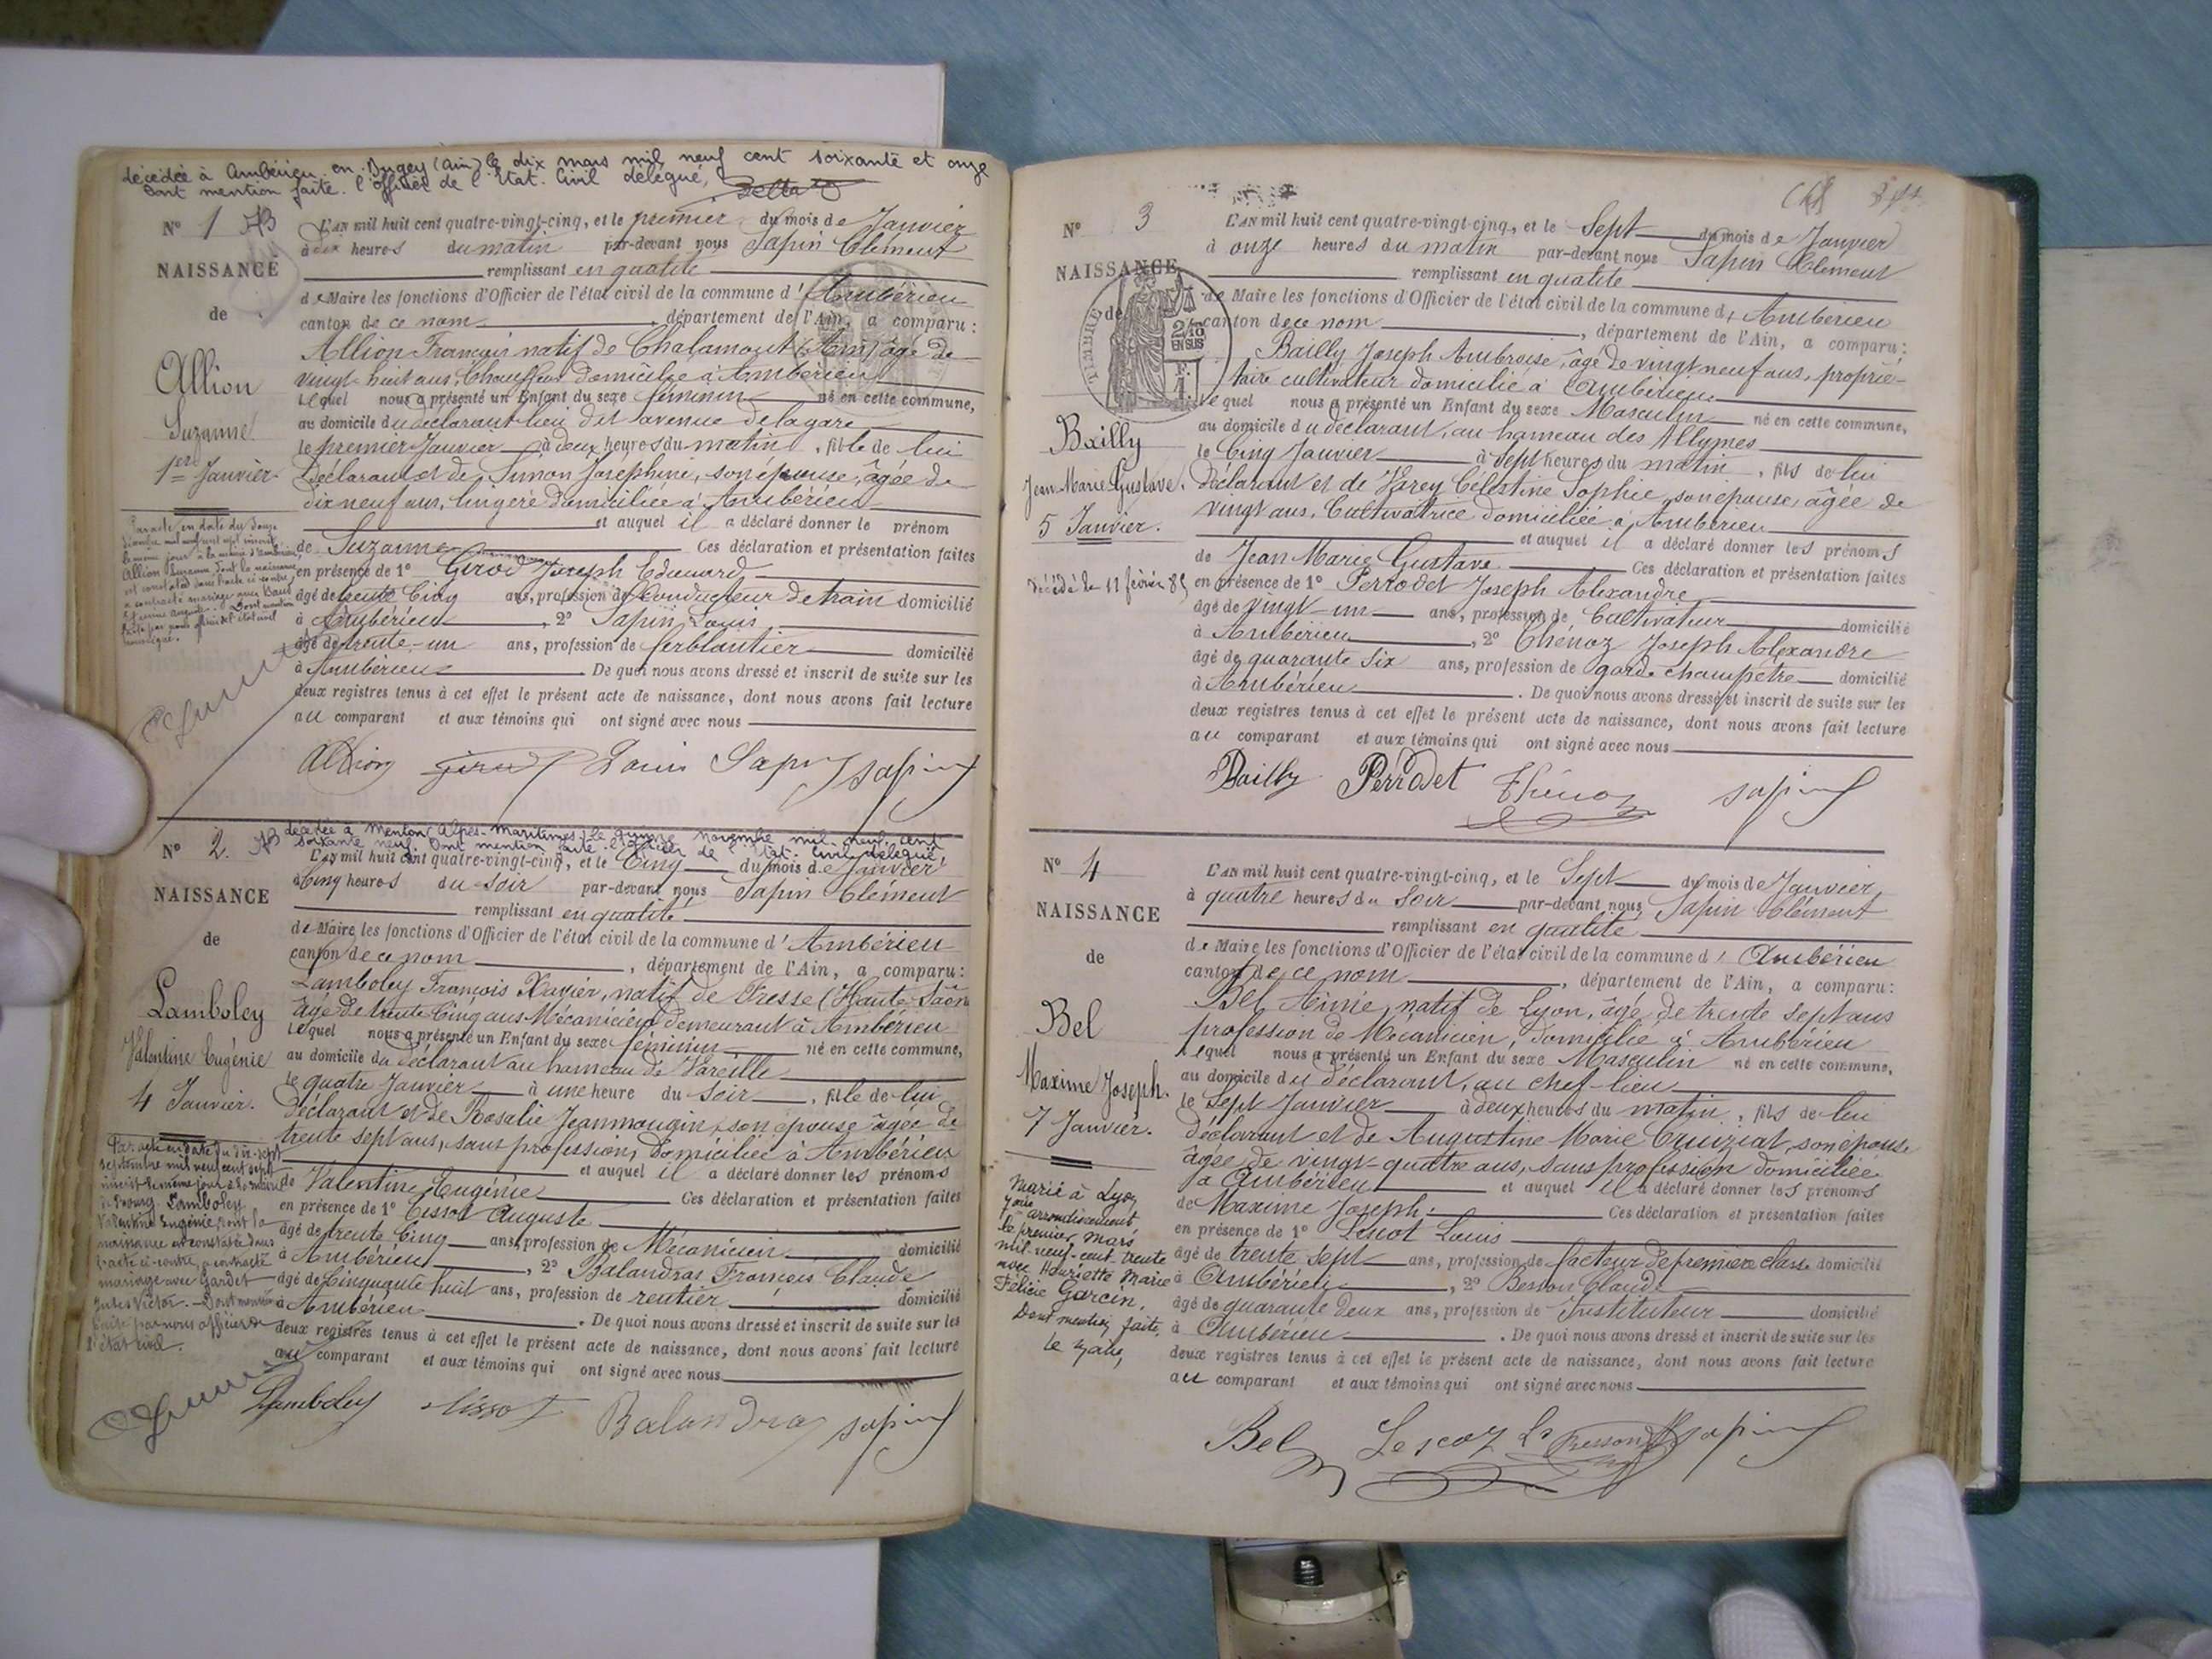 décédée à Ambérieu-en-Bugey (Ain) le dix mars mil neuf cent soixante et onze
Dont mention faite. l'officier de l'Etat-Civil délégué,
N° 1
L'AN mil huit cent quatre-vingt-cinq, et le premier du mois de Janvier
à dix heures du matin par-devant nous Sapin Clément
NAISSANCE
remplissant en qualité
de Maire les fonctions d'Officier de l'état civil de la commune d'Ambérieu
de
canton de ce nom, département de l'Ain, a comparu :
Allion François natif de Chalamont (Ain) âgé de
Allion
vingt-huit ans, Chauffeur domicilié à Ambérieu
lequel nous a présenté un Enfant du sexe féminin né en cette commune,
Suzanne
au domicile du déclarant lieu dit avenue de la gare
le premier Janvier à deux heures du matin, fille de lui
1er Janvier.
Déclarant et de Simon Joséphine, son épouse, âgée de
dix neuf ans, lingère domiciliée à Ambérieu
et auquel il a déclaré donner le prénom
de Suzanne Ces déclaration et présentation faites
en présence de 1° Girod Joseph Edouard
âgé de trente Cinq ans, profession de Conducteur de train domicilié
à Ambérieu, 2° Sapin Louis
âgé de trente-un ans, profession de ferblantier domicilié
à Ambérieu. De quoi nous avons dressé et inscrit de suite sur les
deux registres tenus à cet effet le présent acte de naissance, dont nous avons fait lecture
au comparant et aux témoins qui ont signé avec nous
Par acte en date du douze
décembre mil neuf cent sept inscrit
le même jour à la mairie d'Ambérieu,
Allion Suzanne, dont la naissance
est constatée dans l'acte ci-contre,
a contracté mariage avec
Dont mention
faite par nous officier de l'état civil
soussigné.
Allion Girod Louis Sapin Sapin
décédée à Menton (Alpes-Maritimes) le quinze novembre mil neuf cent
soixante neuf. Dont mention faite. l'officier de l'Etat-Civil délégué,
N° 2.
L'AN mil huit cent quatre-vingt-cinq, et le Cinq du mois de Janvier
à Cinq heures du soir par-devant nous Sapin Clément
NAISSANCE
remplissant en qualité
de Maire les fonctions d'Officier de l'état civil de la commune d'Ambérieu
de
canton de ce nom, département de l'Ain, a comparu :
Lamboley François Xavier, natif de Fresse (Haute-Saône
âgé de trente Cinq ans Mécanicien demeurant à Ambérieu
Lamboley
lequel nous a présenté un Enfant du sexe féminin né en cette commune,
Valentine Eugénie
au domicile du déclarant au hameau de Vareille
le quatre Janvier à une heure du soir, fille de lui
4 Janvier.
déclarant et de Rosalie Jeanmougin, son épouse âgée de
trente sept ans, sans profession, domiciliée à Ambérieu
et auquel il a déclaré donner les prénoms
de Valentine Eugénie Ces déclaration et présentation faites
en présence de 1° Cissot Auguste
âgé de trente Cinq ans, profession de Mécanicien domicilié
à Ambérieu, 2° Balandras François Claude
âgé de Cinquante huit ans, profession de rentier domicilié
à Ambérieu. De quoi nous avons dressé et inscrit de suite sur les
deux registres tenus à cet effet le présent acte de naissance, dont nous avons fait lecture
au comparant et aux témoins qui ont signé avec nous
Par acte en date du dix-sept
septembre mil neuf cent sept
inscrit le même jour à la mairie
de Bourg, Lamboley
Valentine Eugénie, dont la
naissance est constatée dans
l'acte ci-contre, a contracté
mariage avec Gardet
Jules Victor. - Dont mention
faite par nous officier de
l'état civil.
Lamboley Cissot Balandras Sapin
N° 3
L'AN mil huit cent quatre-vingt-cinq, et le Sept du mois de Janvier
à onze heures du matin par-devant nous Sapin Clément
NAISSANCE
remplissant en qualité
de Maire les fonctions d'Officier de l'état civil de la commune d'Ambérieu
de
TIMBRE
2/10 EN SUS
canton de ce nom, département de l'Ain, a comparu :
Bailly Joseph Ambroise, âgé de vingt neuf ans, proprié-
taire cultivateur domicilié à Ambérieu
lequel nous a présenté un Enfant du sexe Masculin né en cette commune,
Bailly
au domicile du déclarant, au hameau des Allymes
le Cinq Janvier à sept heures du matin, fils de lui
Jean Marie Gustave.
déclarant et de Varey Célestine Sophie, son épouse, âgée de
5 Janvier.
vingt ans, Cultivatrice domiciliée à Ambérieu
et auquel il a déclaré donner les prénoms
de Jean Marie Gustave Ces déclaration et présentation faites
décédé le 11 février 85
en présence de 1° Perrodet Joseph Alexandre
âgé de vingt-un ans, profession de Cultivateur domicilié
à Ambérieu, 2° Thénoz Joseph Alexandre
âgé de quarante six ans, profession de garde champêtre domicilié
à Ambérieu. De quoi nous avons dressé et inscrit de suite sur les
deux registres tenus à cet effet le présent acte de naissance, dont nous avons fait lecture
au comparant et aux témoins qui ont signé avec nous
Bailly Perrodet Thénoz Sapin
N° 4
L'AN mil huit cent quatre-vingt-cinq, et le Sept du mois de Janvier
à quatre heures du soir par-devant nous Sapin Clément
NAISSANCE
remplissant en qualité
de Maire les fonctions d'Officier de l'état civil de la commune d'Ambérieu
de
canton de ce nom, département de l'Ain, a comparu :
Bel Aimé, natif de Lyon, âgé de trente sept ans
Bel
profession de Mécanicien, domicilié à Ambérieu
lequel nous a présenté un Enfant du sexe Masculin né en cette commune,
Maxime Joseph.
au domicile du déclarant, au chef-lieu
le Sept Janvier à deux heures du matin, fils de lui
7 Janvier.
déclarant et de Augustine Marie Cruiziat, son épouse
âgée de vingt-quatre ans, sans profession domiciliée
à Ambérieu et auquel il a déclaré donner les prénoms
de Maxime Joseph. Ces déclaration et présentation faites
en présence de 1° Lescot Louis
âgé de trente sept ans, profession de facteur de première classe domicilié
à Ambérieu, 2° Besson Claude
âgé de quarante deux ans, profession de Instituteur domicilié
à Ambérieu. De quoi nous avons dressé et inscrit de suite sur les
deux registres tenus à cet effet le présent acte de naissance, dont nous avons fait lecture
au comparant et aux témoins qui ont signé avec nous
Marié à Lyon
arrondissement
le premier mars
mil-neuf-cent-trente
avec Henriette Marie
Félicie Garcin.
Dont mention faite,
Le Maire,
Bel Lescot Ls Besson Sapin